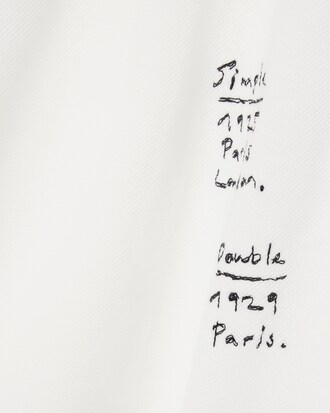 Simple
1925
Paris
London.
Double
1929
Paris.